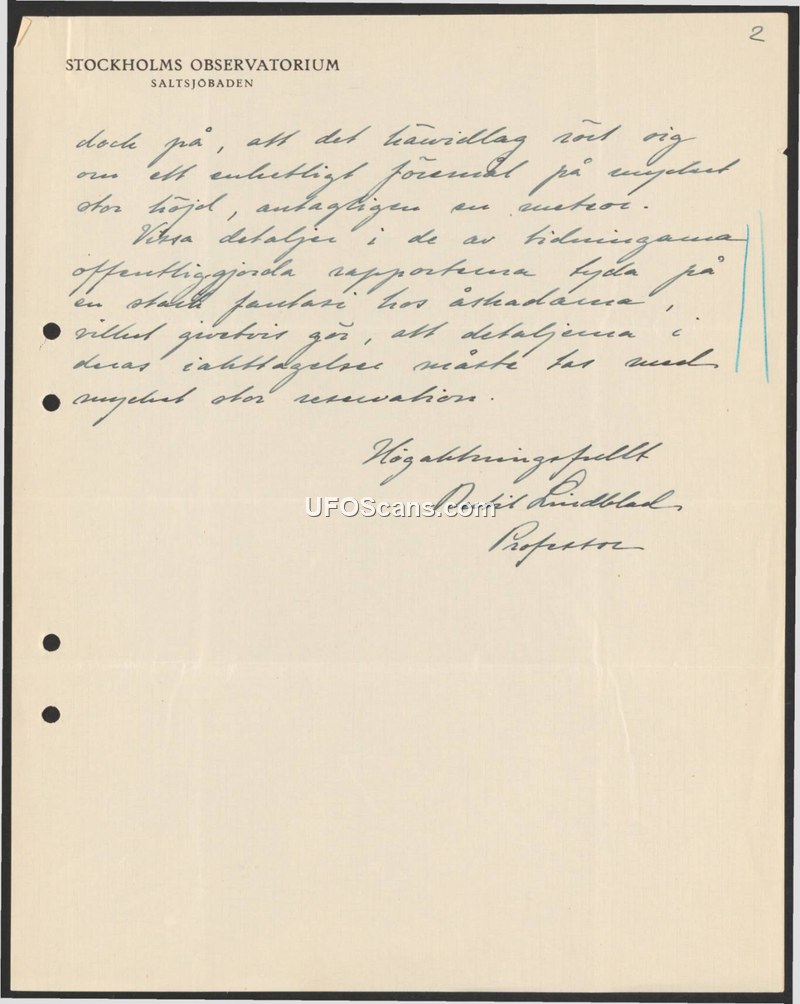 2
STOCKHOLMS OBSERVATORIUM
SALTSJÖBADEN
dock på, att det härvidlag rört sig
om ett enhetligt föremål på mycket
stor höjd, antagligen en meteor.
Vissa detaljer i de av tidningarna
offentliggjorda rapporterna tyda på
en stark fantasi hos åskådarna,
vilket givetvis gör, att detaljerna i
deras iakttagelser måste tas med
mycket stor reservation.
Högaktningsfullt
UFOScans.com
Bertil Lindblad
Professor